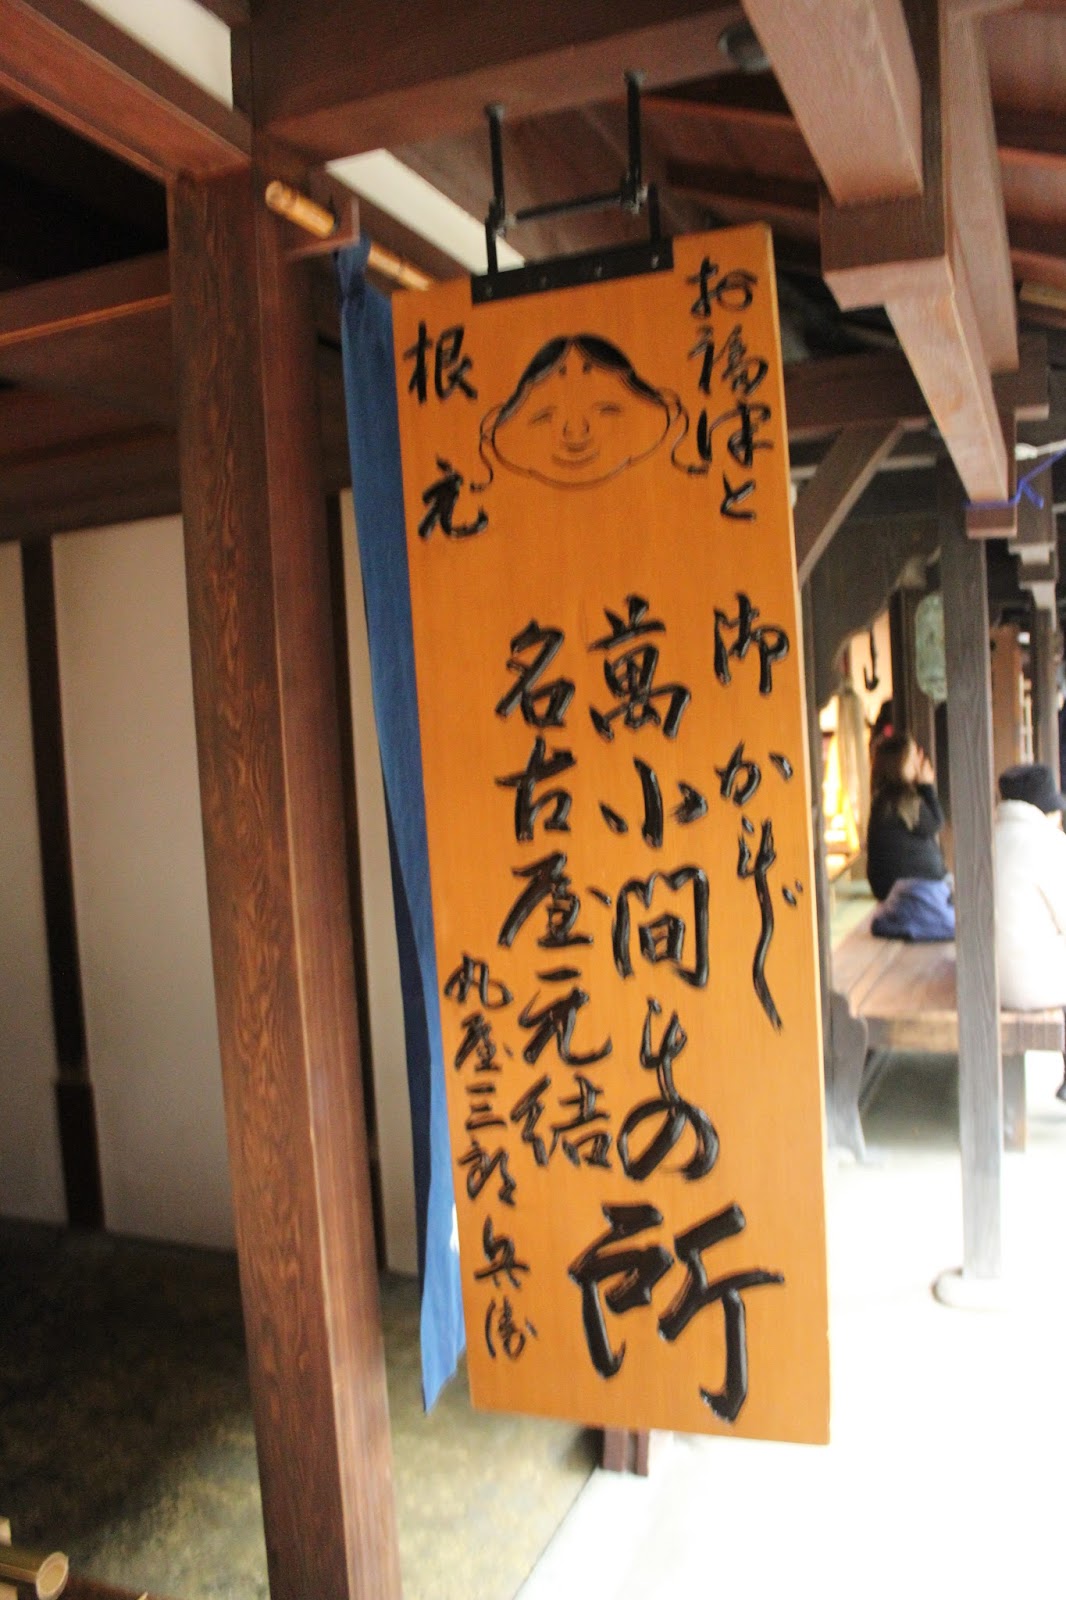 お福
御かもじ
萬小間もの所
名古屋元結
丸屋三郎兵衛
根元